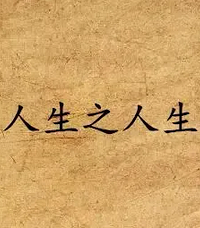 人生之人生